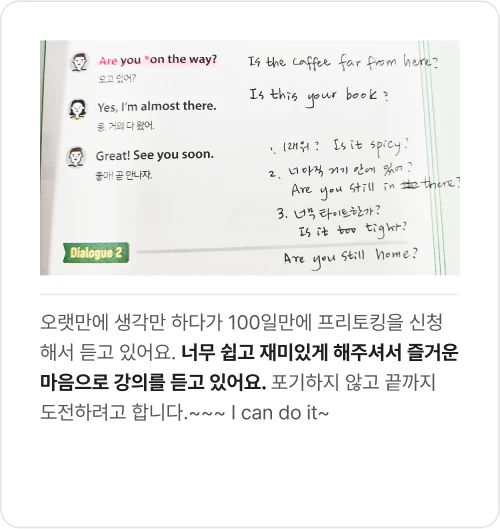 Are you *on the way?
오고 있어?
Yes, I'm almost there.
응, 거의 다 왔어.
Great! See you soon.
좋아! 곧 만나자.
Dialogue 2
Is the Caffee far from here?
Is this your book?
1. 매워? Is it spicy?
2. 너 아직 거기 안에 있어?
Are you still in the there?
3. 너무 타이트한가?
Is it too tight?
Are you still home?
오랫만에 생각만 하다가 100일만에 프리토킹을 신청
해서 듣고 있어요. 너무 쉽고 재미있게 해주셔서 즐거운
마음으로 강의를 듣고 있어요. 포기하지 않고 끝까지
도전하려고 합니다.~~~ I can do it~